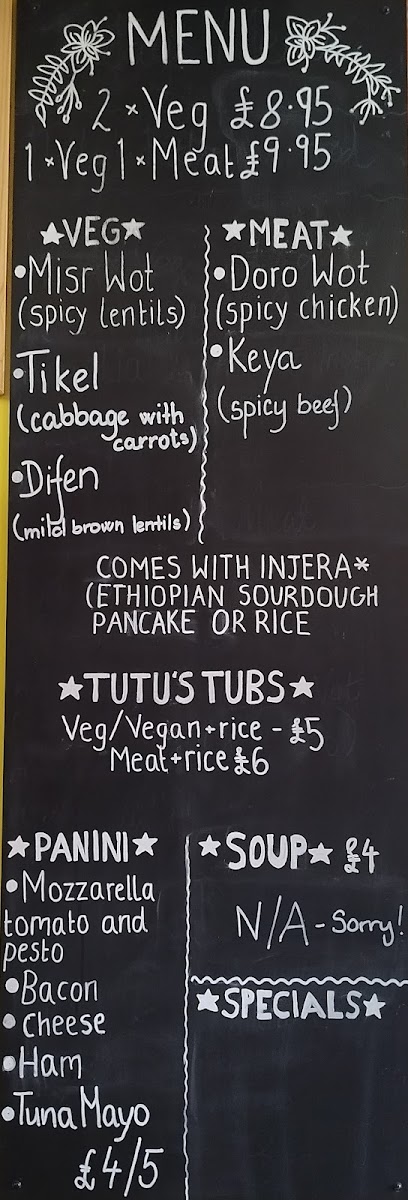 MENU
2 × Veg £8.95
1 × Veg 1 × Meat £9.95
★VEG★
•Misr Wot
(spicy lentils)
•Tikel
(cabbage with
carrots)
•Difen
(mild brown lentils)
★MEAT★
•Doro Wot
(spicy chicken)
•Keya
(spicy beef)
COMES WITH INJERA*
(ETHIOPIAN SOURDOUGH
PANCAKE OR RICE
★TUTU'S TUBS★
Veg/Vegan+rice - £5
Meat+rice £6
★PANINI★
•Mozzarella
tomato and
pesto
•Bacon
•Cheese
•Ham
•Tuna Mayo
£4/5
★SOUP★ £4
N/A - Sorry!
★SPECIALS★